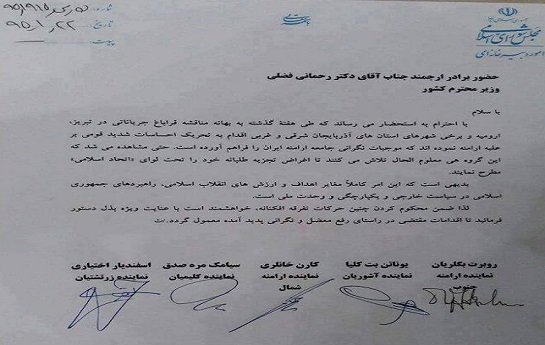 جمهوری اسلامی ایران
مجلس شورای اسلامی
امور دبیرخانه‌ای
شماره:
تاریخ: ۹۵،۱،۲۲
پیوست:
حضور برادر ارجمند جناب آقای دکتر رحمانی فضلی
وزیر محترم کشور
با سلام
با احترام به استحضار می رساند که طی هفتهٔ گذشته به بهانه مناقشه قراباغ جریاناتی در تبریز،
ارومیه و برخی شهرهای استان های آذربایجان شرقی و غربی اقدام به تحریک احساسات شدید قومی بر
علیه ارامنه نموده اند که موجبات نگرانی جامعه ارامنه ایران را فراهم آورده است. حتی مشاهده می شد که
این گروه هی معلوم الحال تلاش می کنند تا اغراض تجزیه طلبانه خود را تحت لوای «اتحاد اسلامی»
مطرح نمایند.
بدیهی است که این امر کاملاً مغایر اهداف و ارزش های انقلاب اسلامی، راهبردهای جمهوری
اسلامی در سیاست خارجی و یکپارچگی و وحدت ملی است.
لذا ضمن محکوم کردن چنین حرکات تفرقه افکنانه، خواهشمند است با عنایت ویژه بذل دستور
فرمائید تا اقدامات مقتضی در راستای رفع معضل و نگرانی پدید آمده معمول گردد.
روبرت بگلریان
نماینده ارامنه
جنوب
یوناتن بت کلیا
نماینده آشوریان
کارن خانلری
نماینده ارامنه
شمال
سیامک مره صدق
نماینده کلیمیان
اسفندیار اختیاری
نماینده زرتشتیان